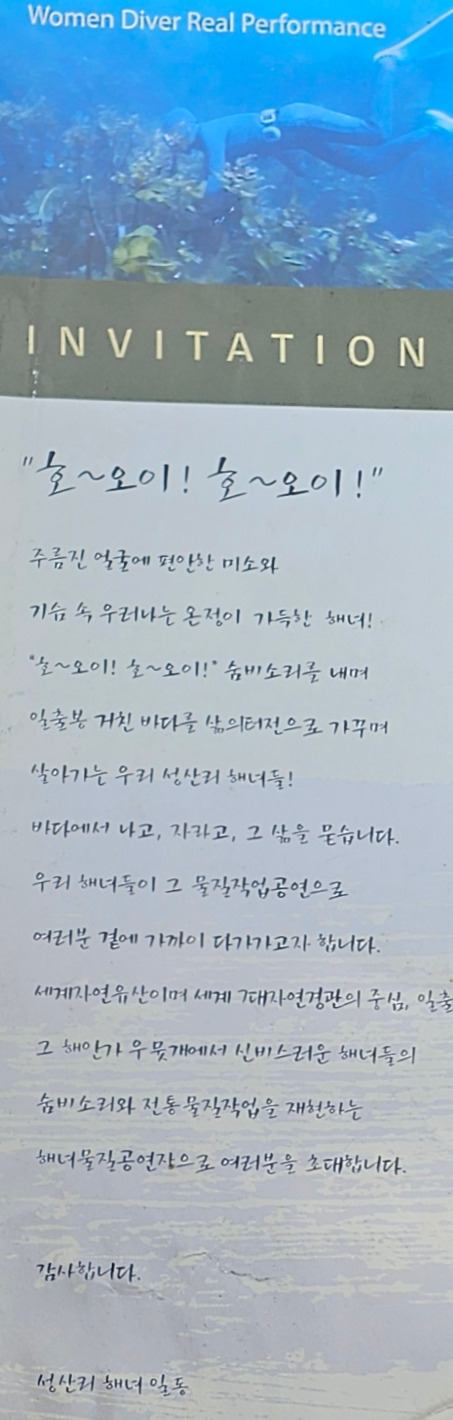 Women Diver Real Performance
INVITATION
"호~오이! 호~오이!"
주름진 얼굴에 편안한 미소와
가슴 속 우러나는 온정이 가득한 해녀!
"호~오이! 호~오이!" 숨비소리를 내며
일출봉 거친 바다를 삶의터전으로 가꾸며
살아가는 우리 성산리 해녀들!
바다에서 나고, 자라고, 그 삶을 묻습니다.
우리 해녀들이 그 물질작업공연으로
여러분 곁에 가까이 다가가고자 합니다.
세계자연유산이며 세계 7대자연경관의 중심, 일출
그 해안가 우뭇개에서 신비스러운 해녀들의
숨비소리와 전통물질작업을 재현하는
해녀물질공연장으로 여러분을 초대합니다.
감사합니다.
성산리 해녀 일동